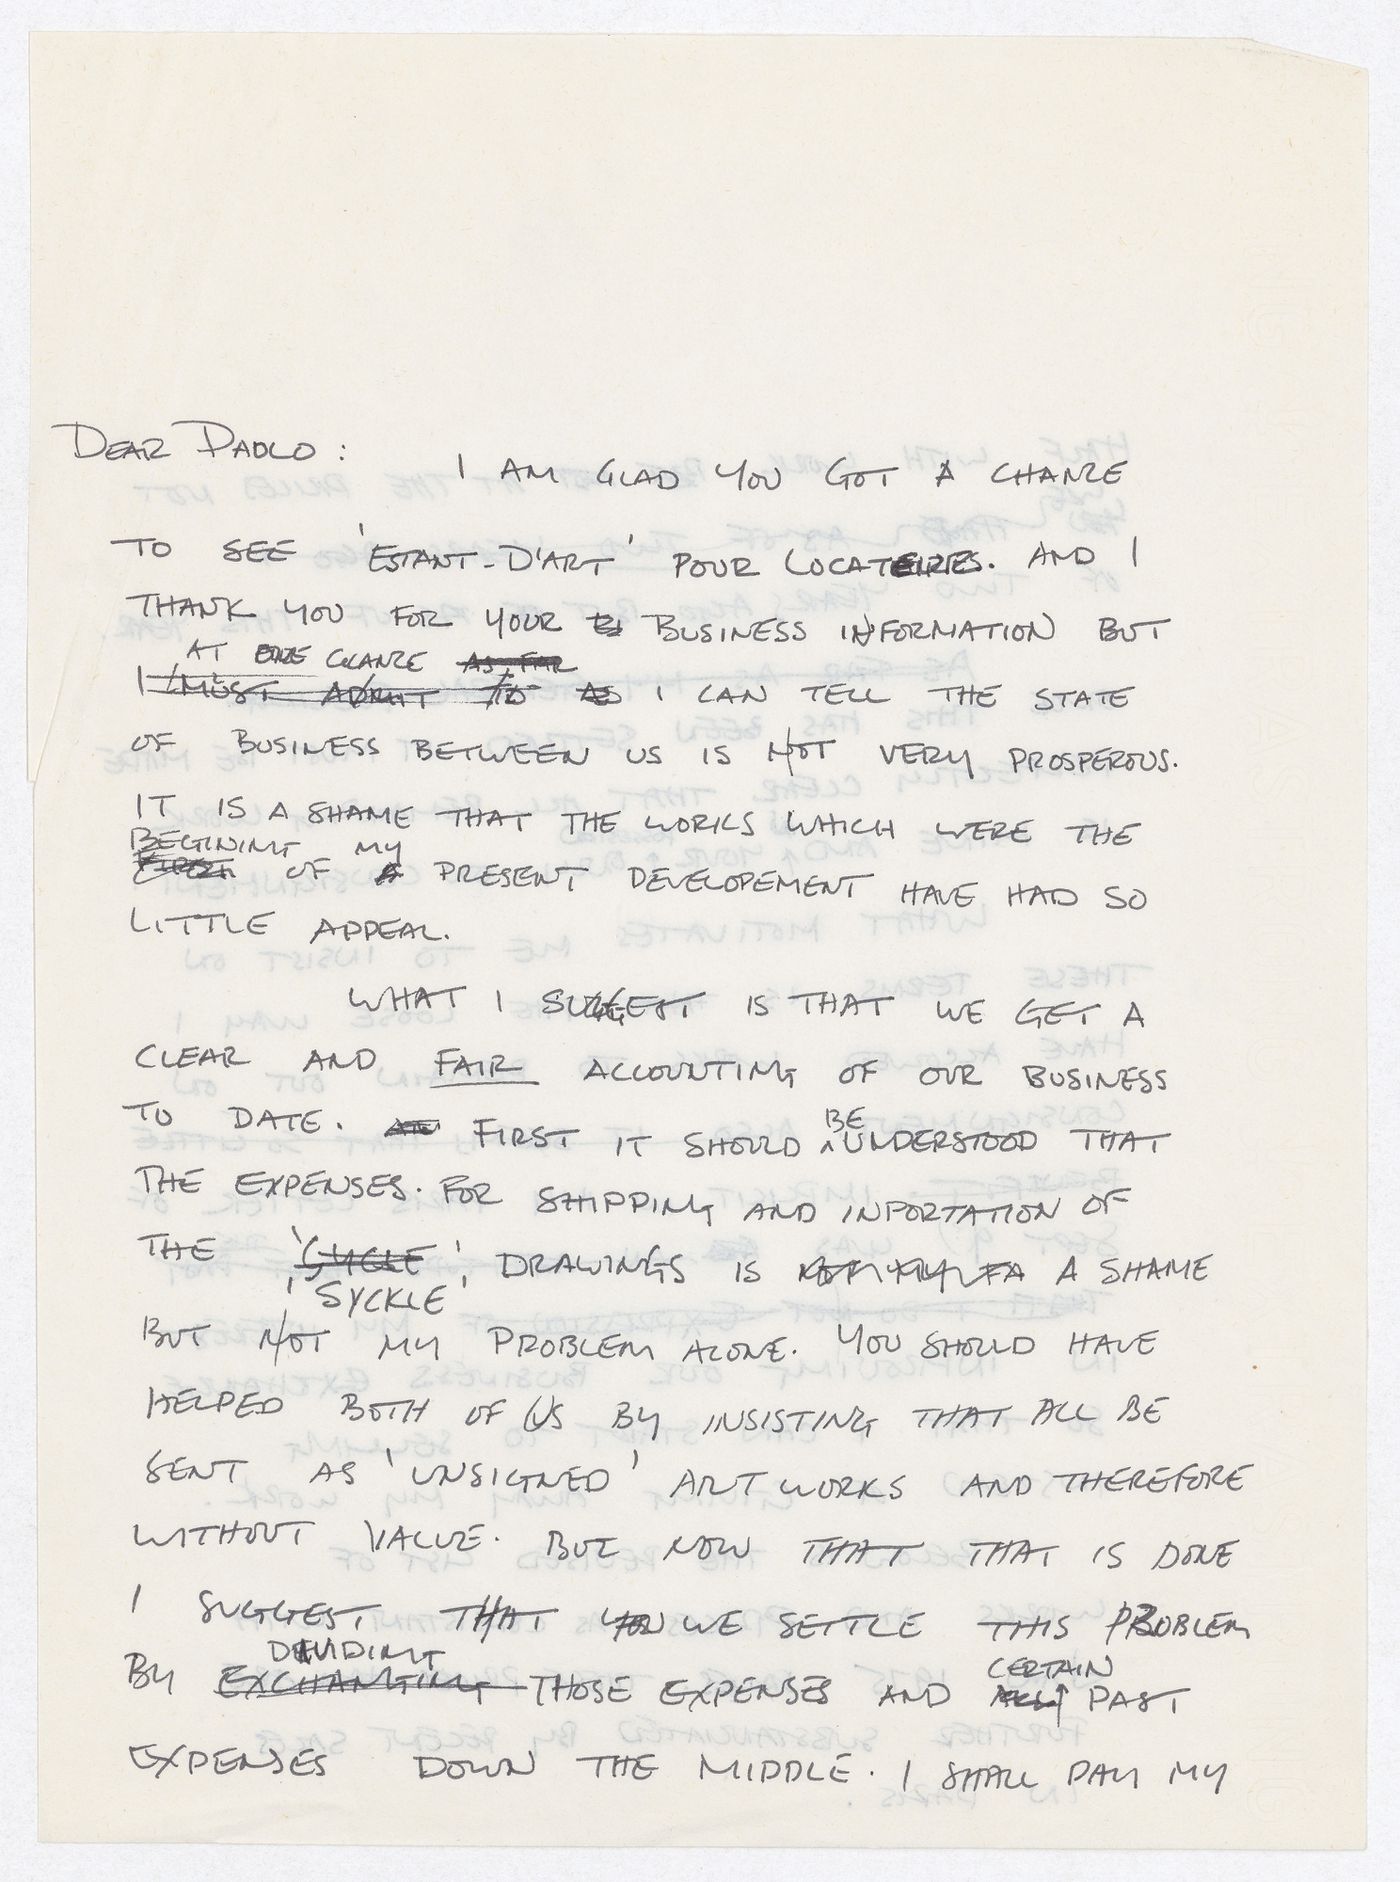 DEAR PAOLO : I AM GLAD YOU GOT A CHANZE
TO SEE 'ESTANT-D'ART' POUR LOCATEIRES. AND I
THANK YOU FOR YOUR BUSINESS INFORMATION BUT
AT ONE GLANZE AS FAR
I MUST ADMIT TO AS I CAN TELL THE STATE
OF BUSINESS BETWEEN US IS NOT VERY PROSPEROUS.
IT IS A SHAME THAT THE WORKS WHICH WERE THE
BEGINING MY
FIRST OF A PRESENT DEVELOPEMENT HAVE HAD SO
LITTLE APPEAL.
WHAT I SUGGEST IS THAT WE GET A
CLEAR AND FAIR ACCOUNTING OF OUR BUSINESS
TO DATE. FIRST IT SHOULD BE UNDERSTOOD THAT
THE EXPENSES. FOR SHIPPING AND INPORTATION OF
THE 'CYCLE' DRAWINGS IS A SHAME
'SYCKLE'
BUT NOT MY PROBLEM ALONE. YOU SHOULD HAVE
HELPED BOTH OF US BY INSISTING THAT ALL BE
SENT AS 'UNSIGNED' ART WORKS AND THEREFORE
WITHOUT VALUE. BUT NOW THAT THAT IS DONE
I SUGGEST THAT YOU WE SETTLE THIS PROBLEM
DEVIDING CERTAIN
BY EXCHANGING THOSE EXPENSES AND ALL PAST
EXPENSES DOWN THE MIDDLE. I SHALL PAY MY